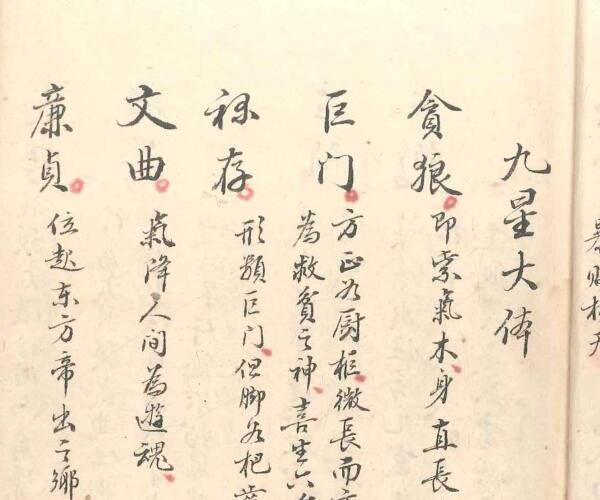 九星大体
貪狼 即紫氣木身直長
巨门 方正为厨柜微長而
為救貧之神喜生六
祿存 形類巨门但脚如杷齒
文曲 氣降人间為遊魂
廉貞 位起东方帝出之鄉